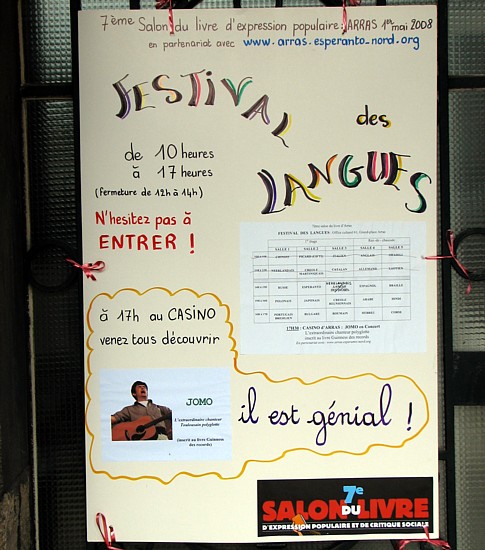 7ème Salon du livre d'expression populaire: ARRAS 1er mai 2008
en partenariat avec www.arras.esperanto-nord.org
FESTIVAL
des
LANGUES
de 10 heures
à 17 heures
(fermeture de 12h à 14h)
N'hesitez pas à
ENTRER !
FESTIVAL DES LANGUES
SALLE 1 SALLE 2 SALLE 3 SALLE 4 SALLE 5
RUSSE ESPERANTO ESPAGNOL
POLONAIS
BULGARE ROUMAIN
17H30 : CASINO d'ARRAS : JOMO en Concert
L'extraordinaire chanteur polyglotte
inscrit au livre Guinness des records
à 17h au CASINO
venez tous découvrir
JOMO
L'extraordinaire chanteur
Toulousain polyglotte
(inscrit au livre Guinness
des records)
il est génial !
7e
SALON DU LIVRE
D'EXPRESSION POPULAIRE ET DE CRITIQUE SOCIALE